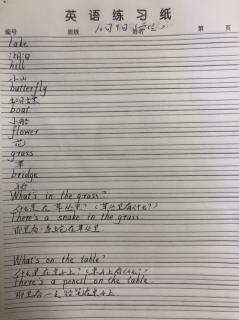 英语练习纸
编号 班级 10月9日(学生) 姓名 第 页
lake
湖泊
hill
小山
butterfly
蝴蝶
boat
小船
flower
花
grass
草
bridge
桥
What's in the grass?
什么在草丛里?(草丛里有什么?)
There's a snake in the grass.
那里有一条蛇在草丛里
What's on the table?
什么在桌子上?(桌子上有什么?)
There's a pencil on the table
那里有一支铅笔在桌子上